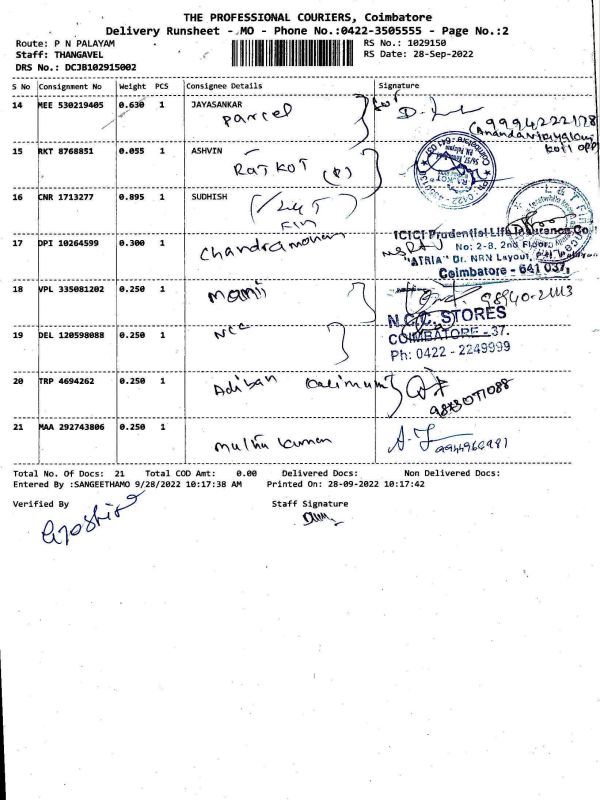 THE PROFESSIONAL COURIERS, Coimbatore
Delivery Runsheet - MO - Phone No.:0422-3505555 - Page No.:2
Route: P N PALAYAM
RS No.: 1029150
Staff: THANGAVEL
RS Date: 28-Sep-2022
DRS No.: DCJB102915002
S No Consignment No Weight PCS Consignee Details Signature
14 MEE 530219405 0.630 1 JAYASANKAR
Parcel
9994222178
15 RKT 8768851 0.055 1 ASHVIN
RAJKOT (P)
16 CNR 1713277 0.895 1 SUDHISH
FIN
17 DPI 10264599 0.300 1 Chandramohan
ICICI Prudential Life Insurance Co
No: 2-B, 2nd Floor,
"ATRIA" Dr. NRN Layout,
Coimbatore - 641 037,
18 VPL 335081202 0.250 1 Mani
98940-21113
N.C.C. STORES
COIMBATORE - 37.
Ph: 0422 - 2249999
19 DEL 120598088 0.250 1 NCC
20 TRP 4694262 0.250 1 Adiban Kalimum
21 MAA 292743806 0.250 1 Muthu Kumar
9944966981
Total No. Of Docs: 21 Total COD Amt: 0.00 Delivered Docs: Non Delivered Docs:
Entered By :SANGEETHAMO 9/28/2022 10:17:38 AM Printed On: 28-09-2022 10:17:42
Verified By Staff Signature